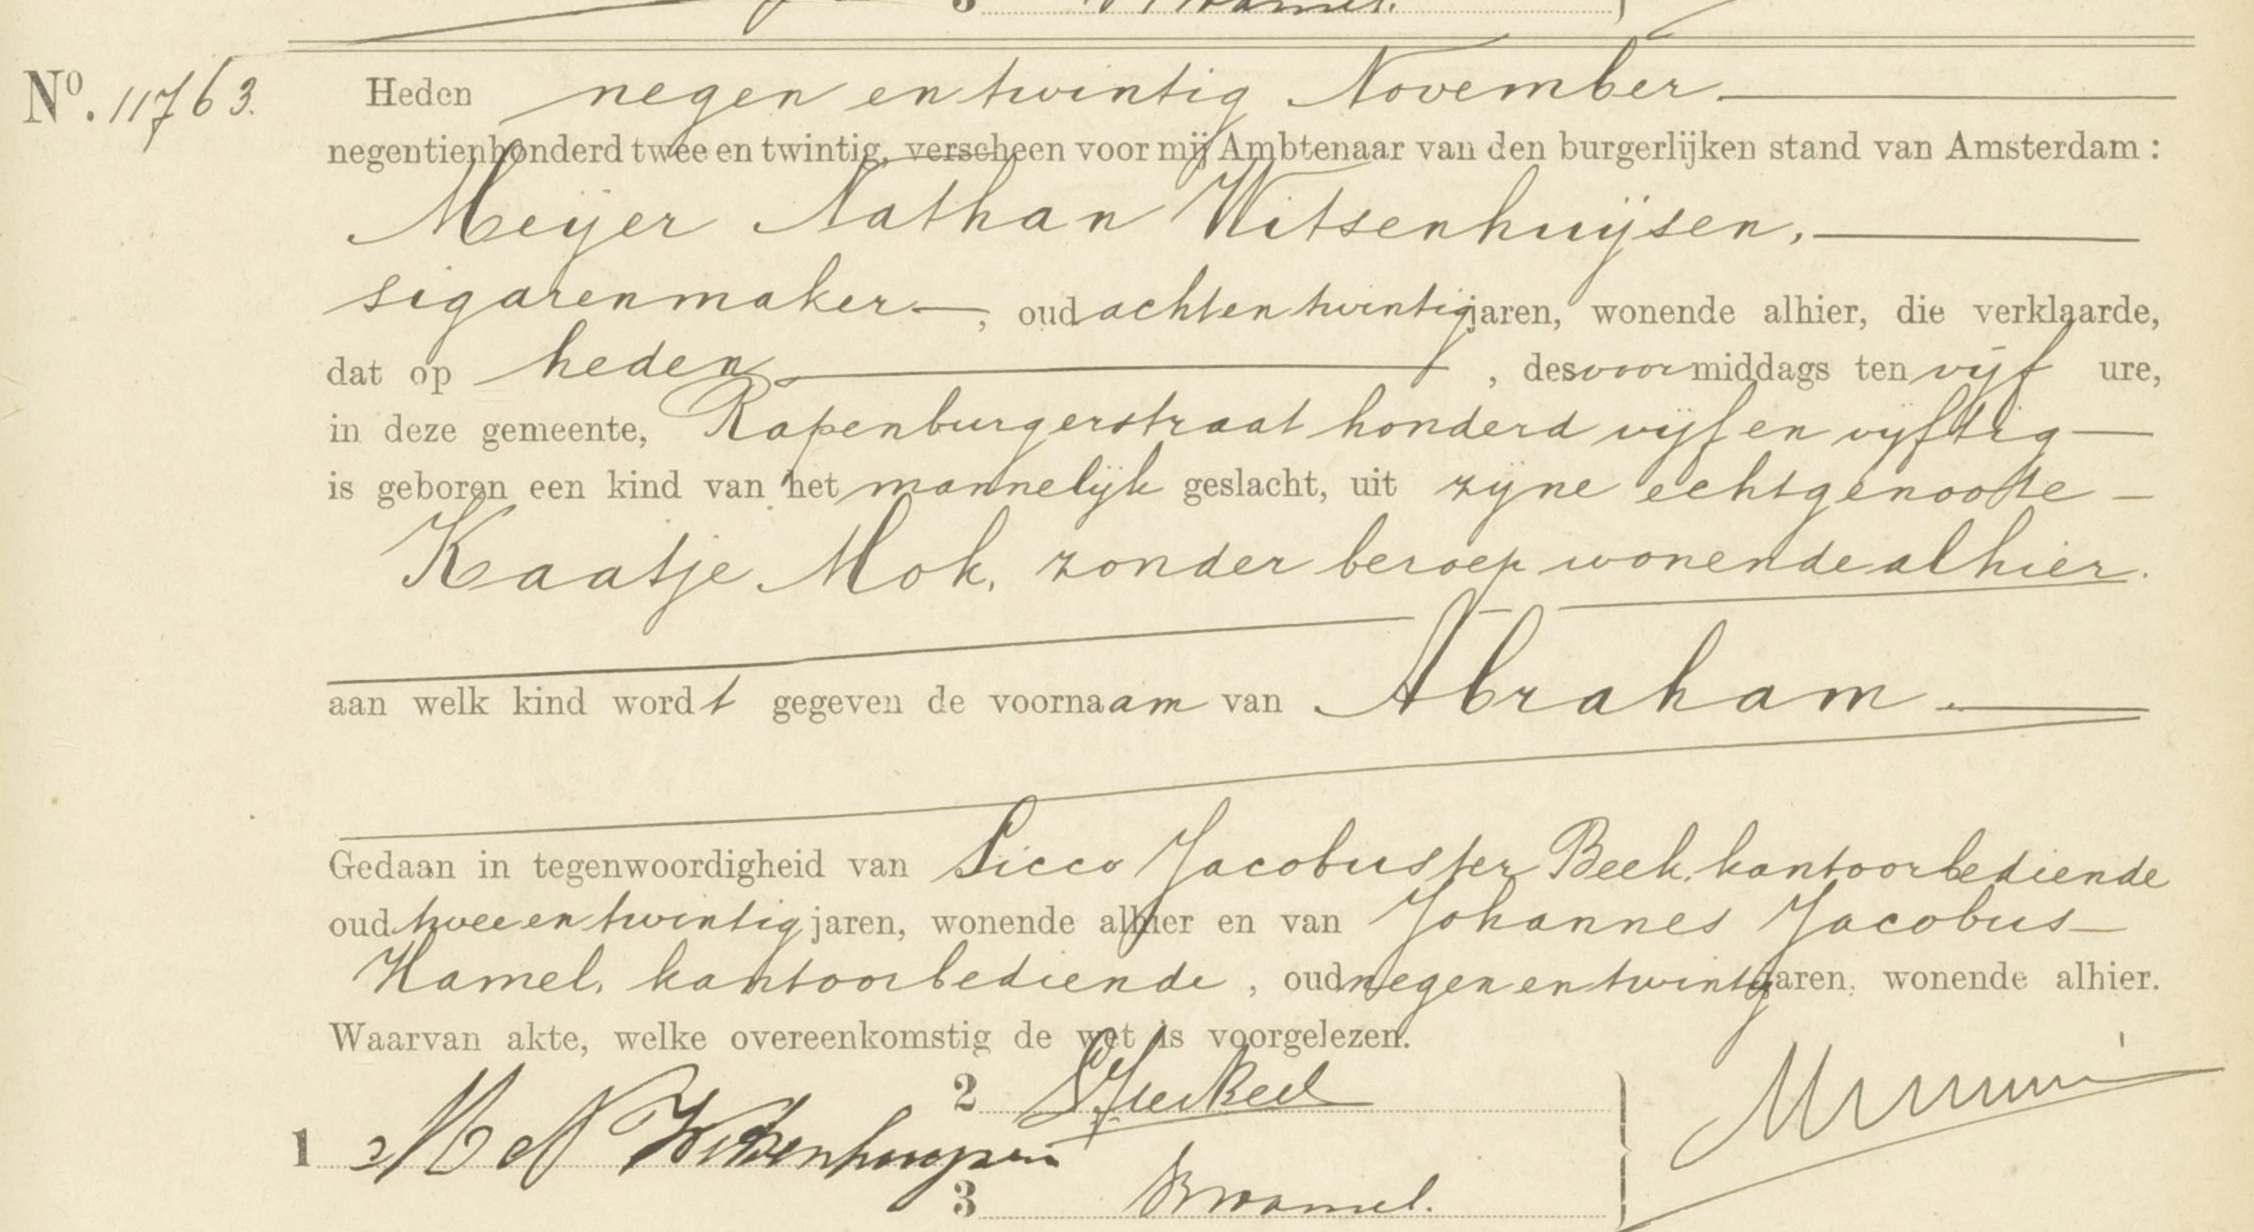 No. 11763.
Heden negen en twintig November
negentienhonderd twee en twintig, verscheen voor mij Ambtenaar van den burgerlijken stand van Amsterdam :
Meijer Nathan Witsenhuijsen,
sigarenmaker, oud acht en twintig jaren, wonende alhier, die verklaarde,
dat op heden, des voormiddags ten vijf ure,
in deze gemeente, Rapenburgerstraat honderd vijf en vijftig
is geboren een kind van het mannelijk geslacht, uit zijne echtgenoote
Kaatje Mok, zonder beroep wonende alhier.
aan welk kind wordt gegeven de voornaam van Abraham.
Gedaan in tegenwoordigheid van Sicco Jacobus ter Beek, kantoorbediende
oud twee en twintig jaren, wonende alhier en van Johannes Jacobus
Hamel, kantoorbediende, oud negen en twintig jaren, wonende alhier.
Waarvan akte, welke overeenkomstig de wet is voorgelezen.
2 SJterBeek
1 M N Witsenhuijsen
3